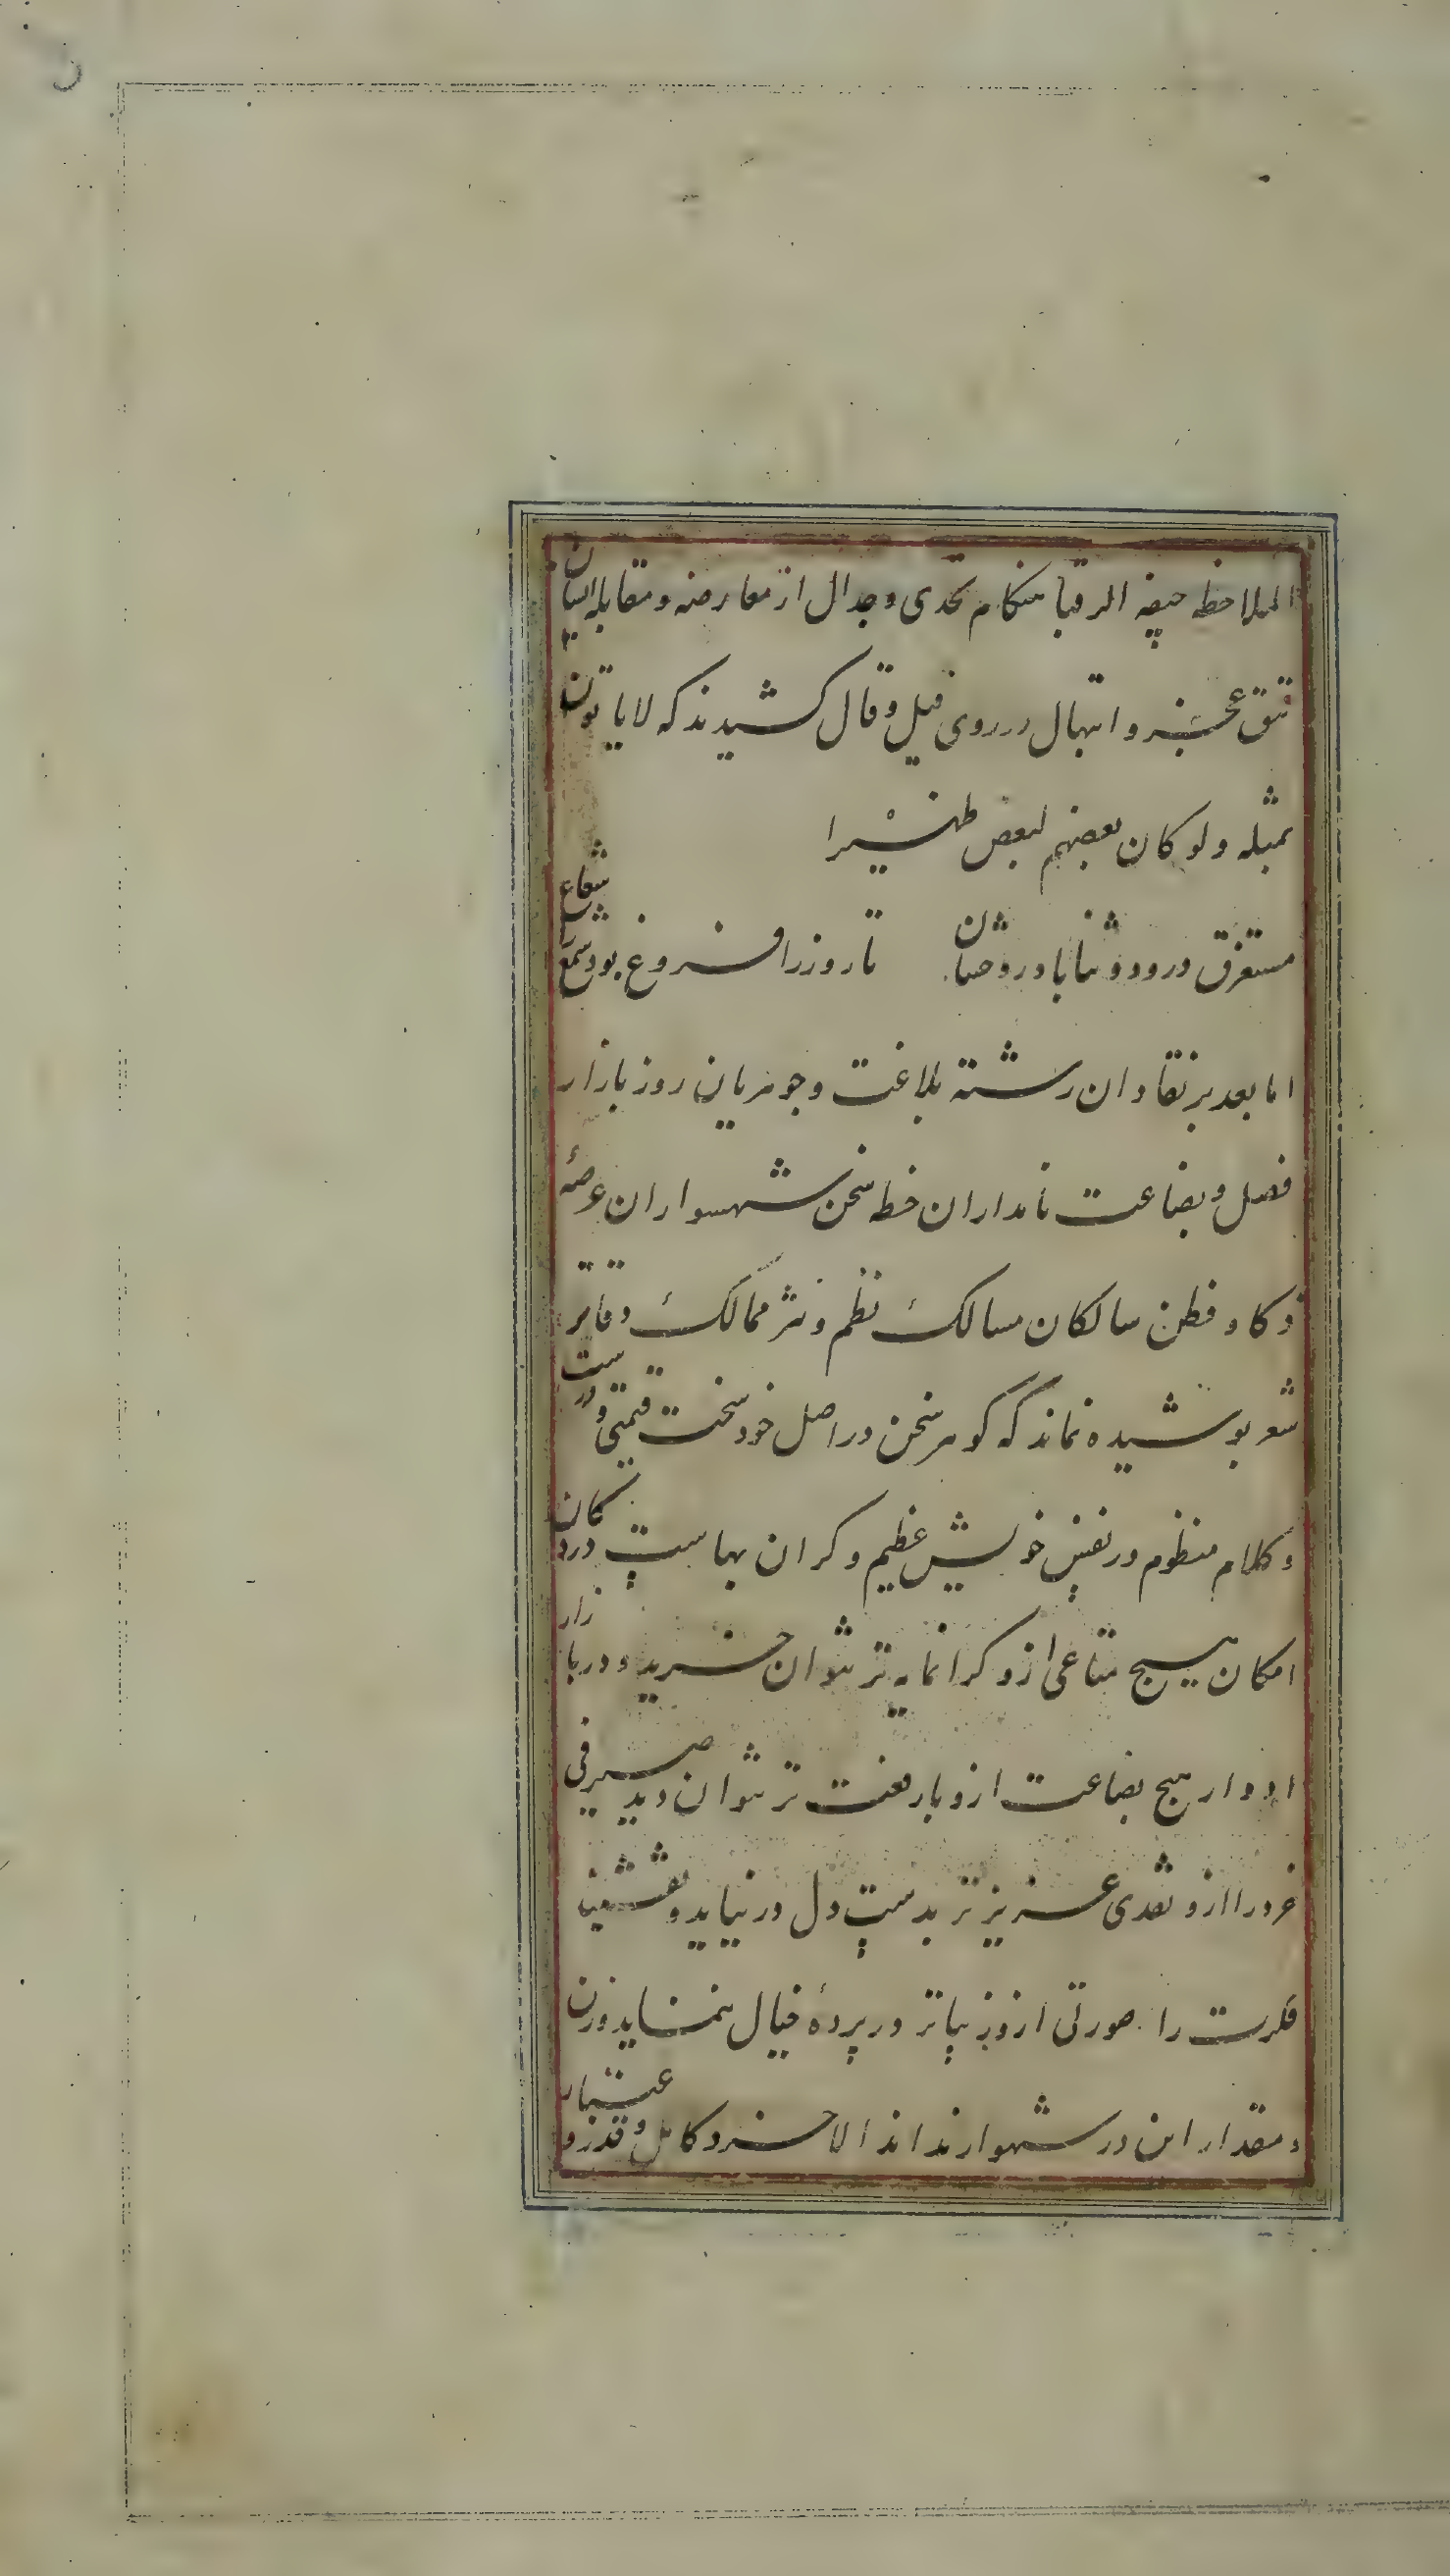 الملاحظ خیفه الرقبا هنکام تحدی و جدال از معارضه و مقابله ایشان
تتق عجز و ابتهال در روی قیل و قال کشیدند که لا یاتون
بمثله ولو کان بعضهم لبعض ظهیرا
مستغرق درود و ثنا باد روحشان تا روز را فروغ بود شمع را شعاع
اما بعد بر نقادان رشته بلاغت و جوهریان روز بازار
فضل و بضاعت نامداران خط سخن شهسواران عرصهٔ
ذکا و فطن سالکان مسالک نظم و نثر ممالک دفاتر
شعر پوشیده نماند که کوهر سخن در اصل خود سخت قیمتی و
و کلام منظوم در نفس خویش عظیم و کران بهاست در دکان
امکان هیچ متاعی ازو کرانمایه تر نتوان خرید و در بازار
ادوار هیچ بضاعت ازو با رفعت تر نتوان دید صیرفی
خرد را ازو نقدی عزیز تر بدست دل در نیاید و نقشبند
فکرت را صورتی ازو زیباتر در پردهٔ خیال ننماید وزن
و مقدار این در شهوار نداند الا خرد کامل و قدر و عیار